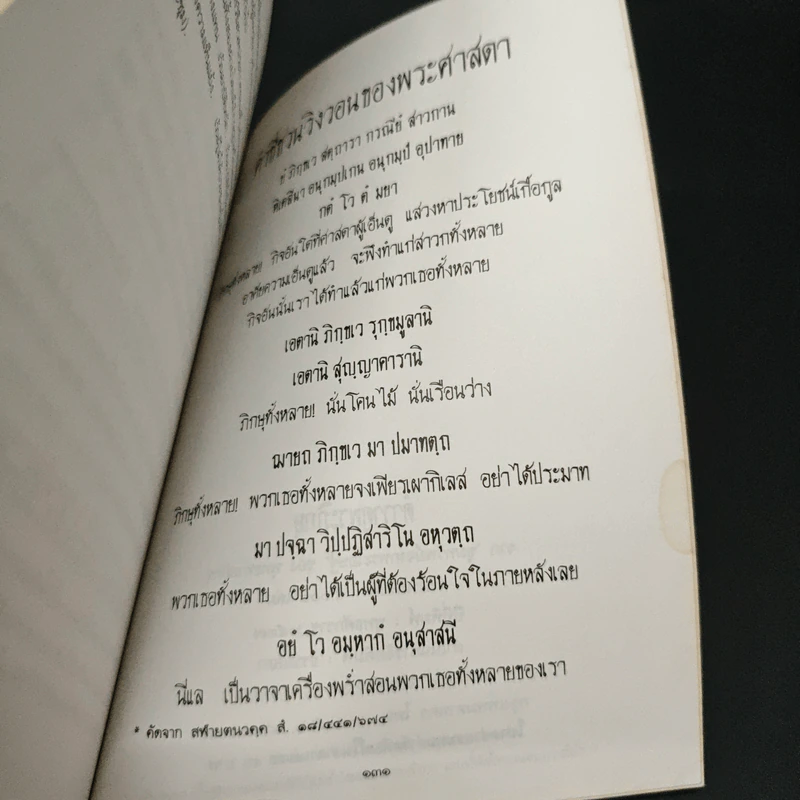 คำชี้ชวนวิงวอนของพระศาสดา
ยํ ภิกฺขเว สตฺถารา กรณียํ สาวกานํ
หิเตสินา อนุกมฺปเกน อนุกมฺปํ อุปาทาย
กตํ โว ตํ มยา
ภิกษุทั้งหลาย! กิจอันใดที่ศาสดาผู้เอ็นดู แสวงหาประโยชน์เกื้อกูล
อาศัยความเอ็นดูแล้ว จะพึงทำแก่สาวกทั้งหลาย
กิจอันนั้นเราได้ทำแล้วแก่พวกเธอทั้งหลาย
เอตานิ ภิกฺขเว รุกฺขมูลานิ
เอตานิ สุญฺญาคารานิ
ภิกษุทั้งหลาย! นั่นโคนไม้ นั่นเรือนว่าง
ฌายถ ภิกฺขเว มา ปมาทตฺถ
ภิกษุทั้งหลาย! พวกเธอทั้งหลายจงเพียรเผากิเลส อย่าได้ประมาท
มา ปจฺฉา วิปฺปฏิสาริโน อหุวตฺถ
พวกเธอทั้งหลาย อย่าได้เป็นผู้ที่ต้องร้อนใจในภายหลังเลย
อยํ โว อมฺหากํ อนุสาสนี
นี่แล เป็นวาจาเครื่องพร่ำสอนพวกเธอทั้งหลายของเรา
* คัดจาก สฬายตนวคฺค สํ. ๑๘/๔๔๑/๖๗๔
๑๓๑